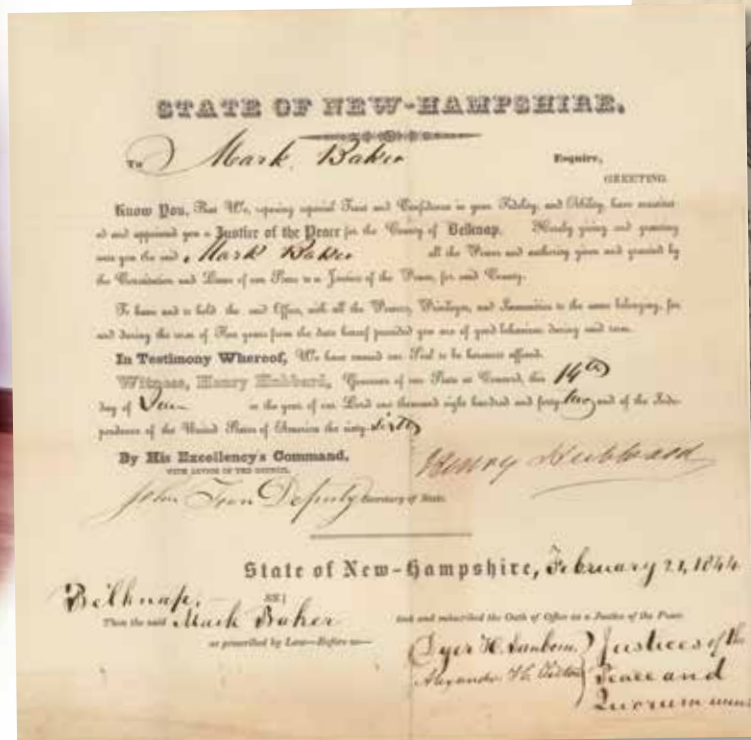 STATE OF NEW-HAMPSHIRE.
To Mark Baker Esquire,
GREETING.
Know You, That We, reposing especial Trust and Confidence in your Fidelity, and Ability, have constitut-
ed and appointed you a Justice of the Peace for the County of Belknap. Hereby giving and granting
unto you the said Mark Baker all the Power and authority given and granted by
the Constitution and Laws of our State to a Justice of the Peace, for said County.
To have and to hold the said Office, with all the Powers, Privileges, and Immunities to the same belonging, for
and during the term of Five years from the date hereof provided you are of good behaviour during said term.
In Testimony Whereof, We have caused our Seal to be hereunto affixed.
Witness, Henry Hubbard, Governor of our State at Concord, this 14th
day of in the year of our Lord one thousand eight hundred and forty two, and of the Inde-
pendence of the United States of America the sixty-sixth
By His Excellency's Command,
WITH ADVICE OF THE COUNCIL.
Henry Hubbard
John Deputy Secretary of State.
State of New-Hampshire, February 21, 1844
Belknap, SS
Then the said Mark Baker took and subscribed the Oath of Office as a Justice of the Peace
as prescribed by Law—Before us—
Dyer H. Sanborn } Justices of the
Alexander Tilton } Peace and
Quorum